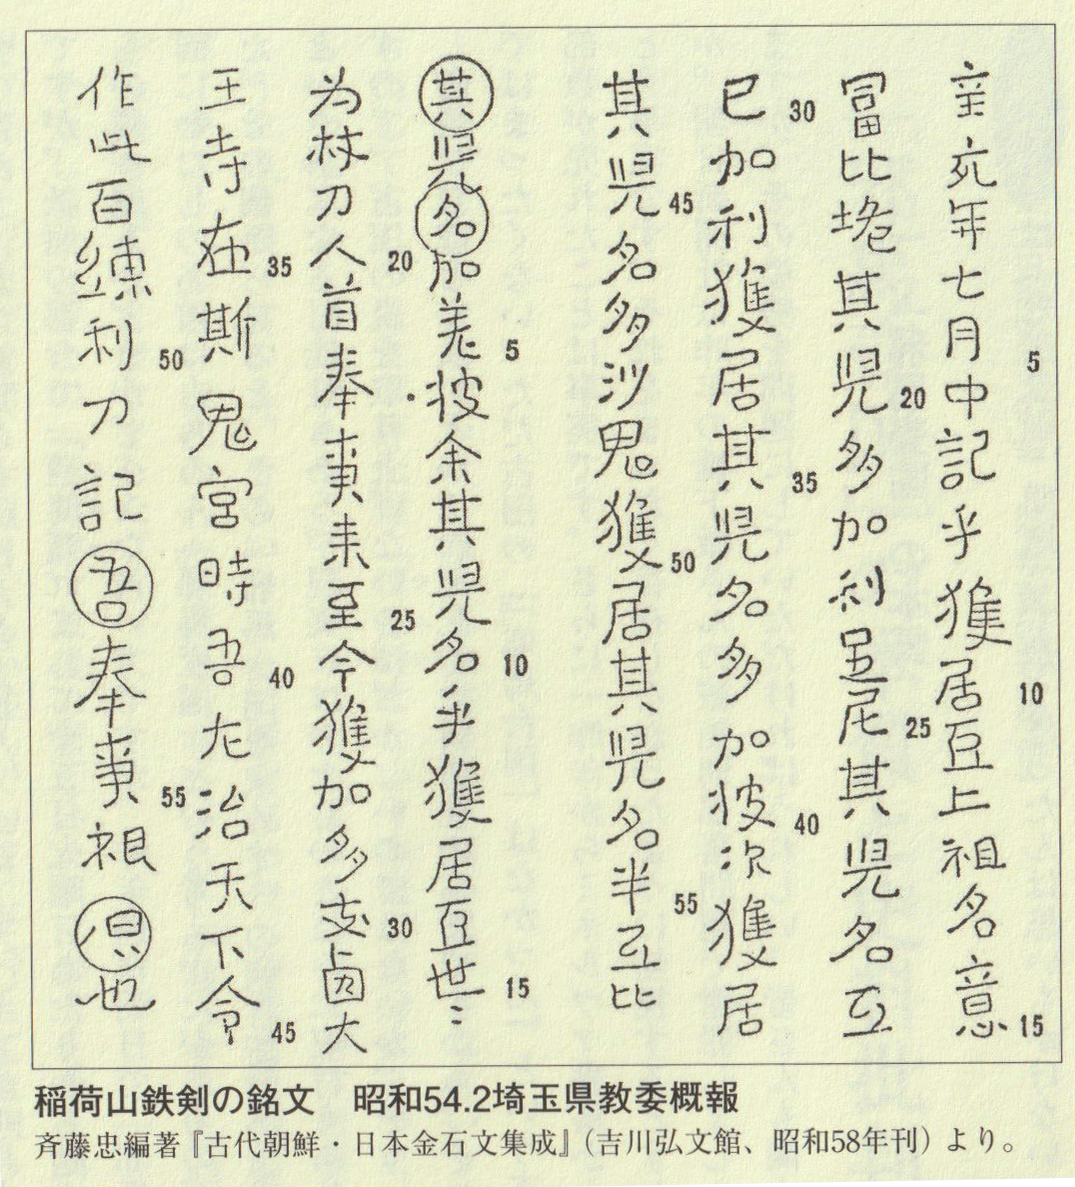 辛亥年七月5中記乎獲居10臣上祖名意15
冨比垝其児20多加利足尼25其児名弖
已30加利獲居其35児名多加披40次獲居
其児45名多沙鬼獲50居其児名半55弖比
其児名加差5披余其児名10乎獲居臣世15々
为杖刀人20首奉事来至25今獲加多支30鹵大
王寺在35斯鬼宮時吾40左治天下令45
作此百練利50刀記吾奉事55根原也
稲荷山鉄剣の銘文　昭和54.2埼玉県教委概報
斉藤忠編著『古代朝鮮・日本金石文集成』（吉川弘文館、昭和58年刊）より。